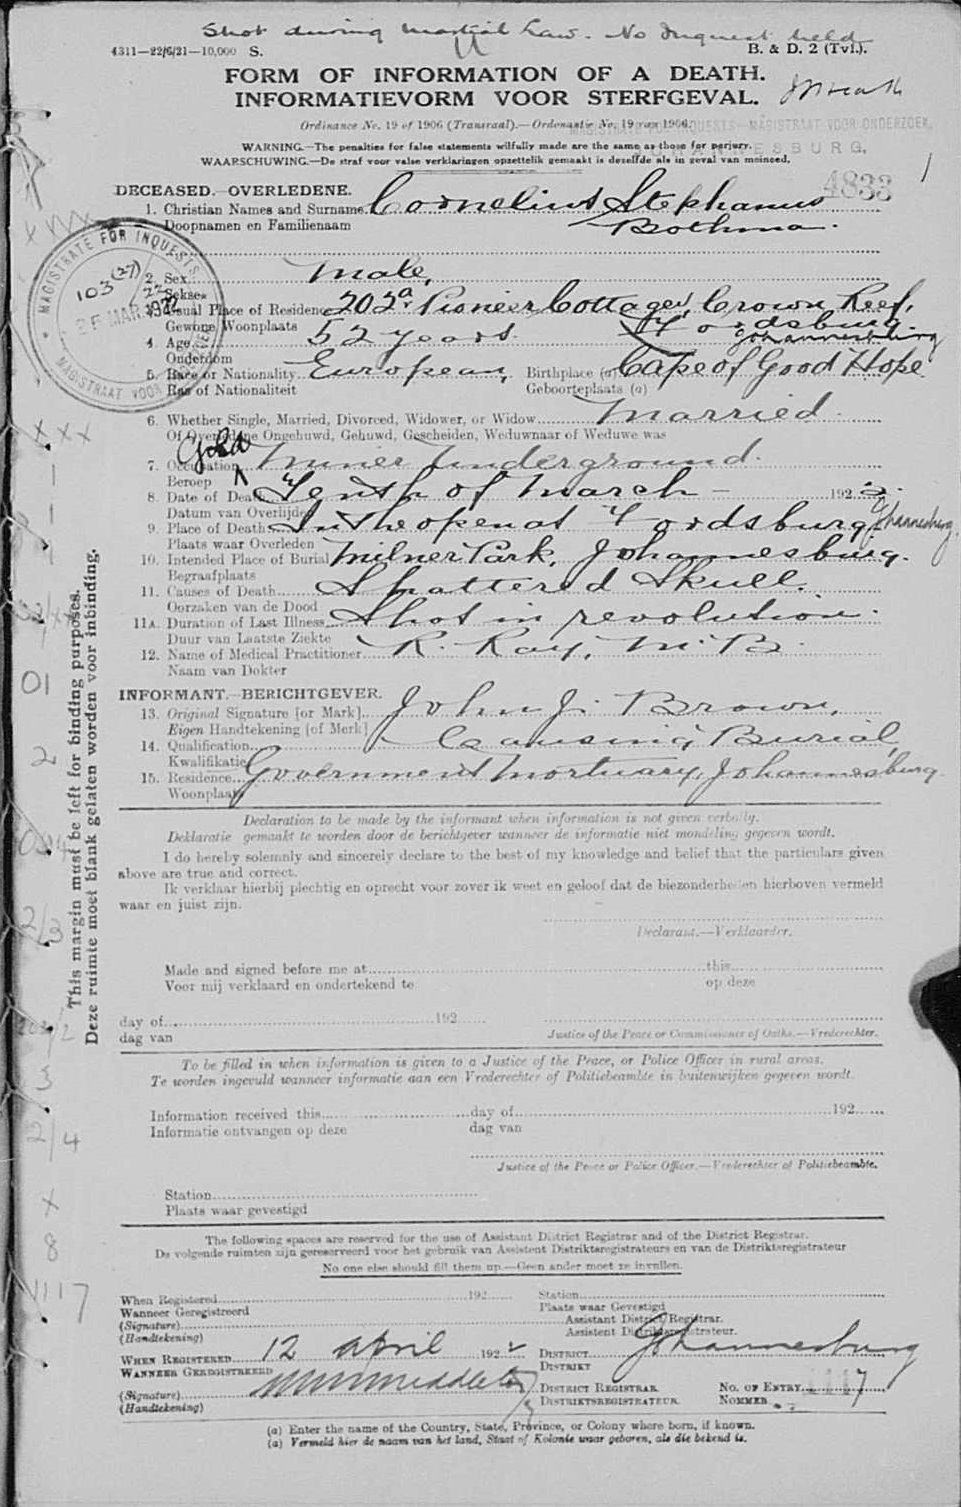 Shot during Martial Law. No Inquest held
4311—22/6/21—10,000 S.
B. & D. 2 (Tvl.).
FORM OF INFORMATION OF A DEATH.
INFORMATIEVORM VOOR STERFGEVAL.
Ordinance No. 19 of 1906 (Transvaal).—Ordonantie No. 19 van 1906.
MAGISTRATE FOR INQUESTS—MAGISTRAAT VOOR ONDERZOEK,
JOHANNESBURG,
WARNING.—The penalties for false statements wilfully made are the same as those for perjury.
WAARSCHUWING.—De straf voor valse verklaringen opzettelik gemaakt is dezelfde als in geval van meineed.
4833
DECEASED.—OVERLEDENE.
1. Christian Names and Surname Cornelius Stephanus
Doopnamen en Familienaam Bothma.
MAGISTRATE FOR INQUESTS
103 (27)/22
MAR 1922
MAGISTRAAT VOOR
2. Sex Male,
Sekse
3. Usual Place of Residence 202a Pioneer Cottages, Crown Reef,
Gewone Woonplaats Fordsburg. Johannesburg
4. Age 52 years.
Ouderdom
5. Race or Nationality European, Birthplace (a) Cape of Good Hope
Ras of Nationaliteit Geboorteplaats (a)
6. Whether Single, Married, Divorced, Widower, or Widow Married.
Of Overledene Ongehuwd, Gehuwd, Gescheiden, Weduwnaar of Weduwe was
7. Occupation Gold Miner Underground.
Beroep
8. Date of Death Tenth of March 1922.
Datum van Overlijden
9. Place of Death In the open at Fordsburg Johannesburg.
Plaats waar Overleden
10. Intended Place of Burial Milner Park, Johannesburg.
Begraafplaats
11. Causes of Death Shattered Skull.
Oorzaken van de Dood
11A. Duration of Last Illness Shot in revolution.
Duur van Laatste Ziekte
12. Name of Medical Practitioner R. Kay, M.B.
Naam van Dokter
INFORMANT.—BERICHTGEVER.
13. Original Signature [or Mark] John J. Brown,
Eigen Handtekening [of Merk]
14. Qualification Causing Burial,
Kwalifikatie
15. Residence Government Mortuary, Johannesburg.
Woonplaats
Declaration to be made by the informant when information is not given verbally.
Deklaratie gemaakt te worden door de berichtgever wanneer de informatie niet mondeling gegeven wordt.
I do hereby solemnly and sincerely declare to the best of my knowledge and belief that the particulars given
above are true and correct.
Ik verklaar hierbij plechtig en oprecht voor zover ik weet en geloof dat de biezonderheden hierboven vermeld
waar en juist zijn.
Declarant.—Verklaarder.
Made and signed before me at this
Voor mij verklaard en ondertekend te op deze
day of 192
dag van Justice of the Peace or Commissioner of Oaths.—Vrederechter.
To be filled in when information is given to a Justice of the Peace, or Police Officer in rural areas.
Te worden ingevuld wanneer informatie aan een Vrederechter of Politiebeambte in buitenwijken gegeven wordt.
Information received this day of 192
Informatie ontvangen op deze dag van
Justice of the Peace or Police Officer.—Vrederechter of Politiebeambte.
Station
Plaats waar gevestigd
The following spaces are reserved for the use of Assistant District Registrar and of the District Registrar.
De volgende ruimten zijn gereserveerd voor het gebruik van Assistent Distriktsregistrateurs en van de Distriktsregistrateur
No one else should fill them up.—Geen ander moet ze invullen.
When Registered 192 Station
Wanneer Geregistreerd Plaats waar Gevestigd
(Signature) Assistant District Registrar.
(Handtekening) Assistent Distriktsregistrateur.
WHEN REGISTERED 12 April 1922 DISTRICT Johannesburg
WANNEER GEREGISTREERD DISTRIKT
(Signature) DISTRICT REGISTRAR No. OF ENTRY 1117
(Handtekening) DISTRIKTSREGISTRATEUR. NOMMER
(a) Enter the name of the Country, State, Province, or Colony where born, if known.
(a) Vermeld hier de naam van het land, Staat of Kolonie waar geboren, als die bekend is.
This margin must be left for binding purposes.
Deze ruimte moet blank gelaten worden voor inbinding.